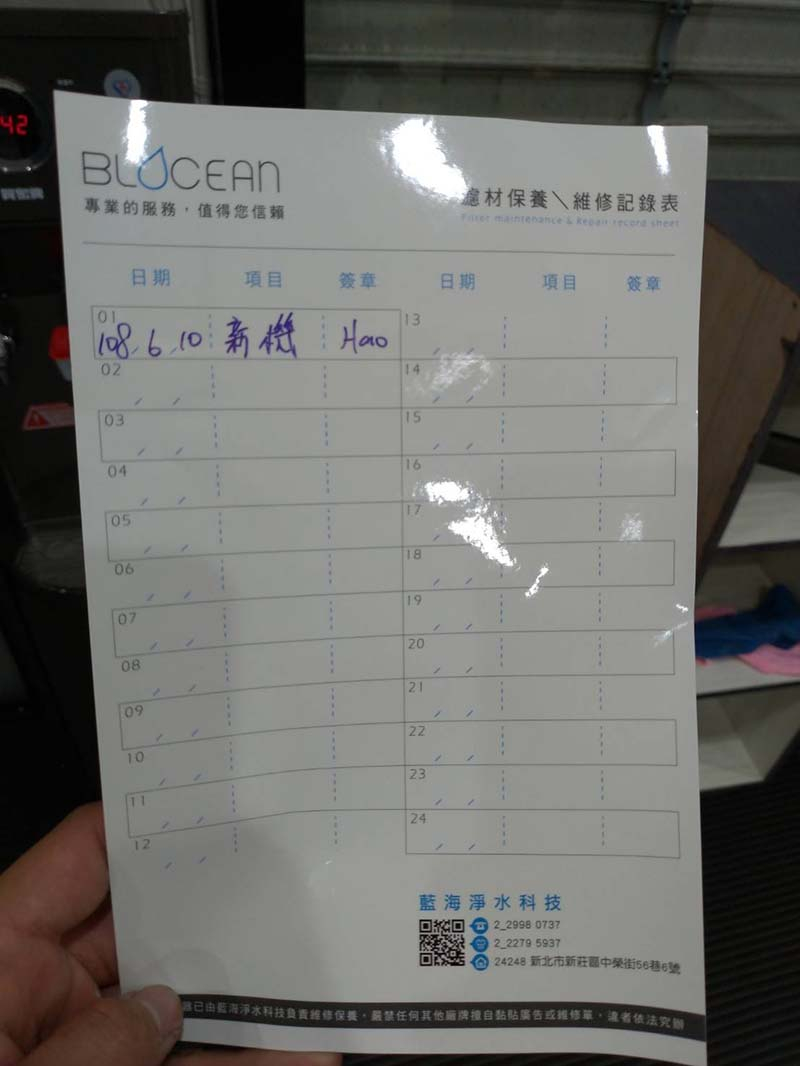 42
BLUOCEAN
專業的服務，值得您信賴
濾材保養＼維修記錄表
Filter maintenance & Repair record sheet
日期 項目 簽章 日期 項目 簽章
01 108/6/10 新機 Hao
02 / /
03 / /
04 / /
05 / /
06 / /
07 / /
08 / /
09 / /
10 / /
11 / /
12 / /
13 / /
14 / /
15 / /
16
17
18 / /
19 / /
20 / /
21 / /
22 / /
23 / /
24 / /
藍海淨水科技
2_2998 0737
2_2279 5937
24248 新北市新莊區中榮街56巷6號
器已由藍海淨水科技負責維修保養，嚴禁任何其他廠牌擅自黏貼廣告或維修單，違者依法究辦